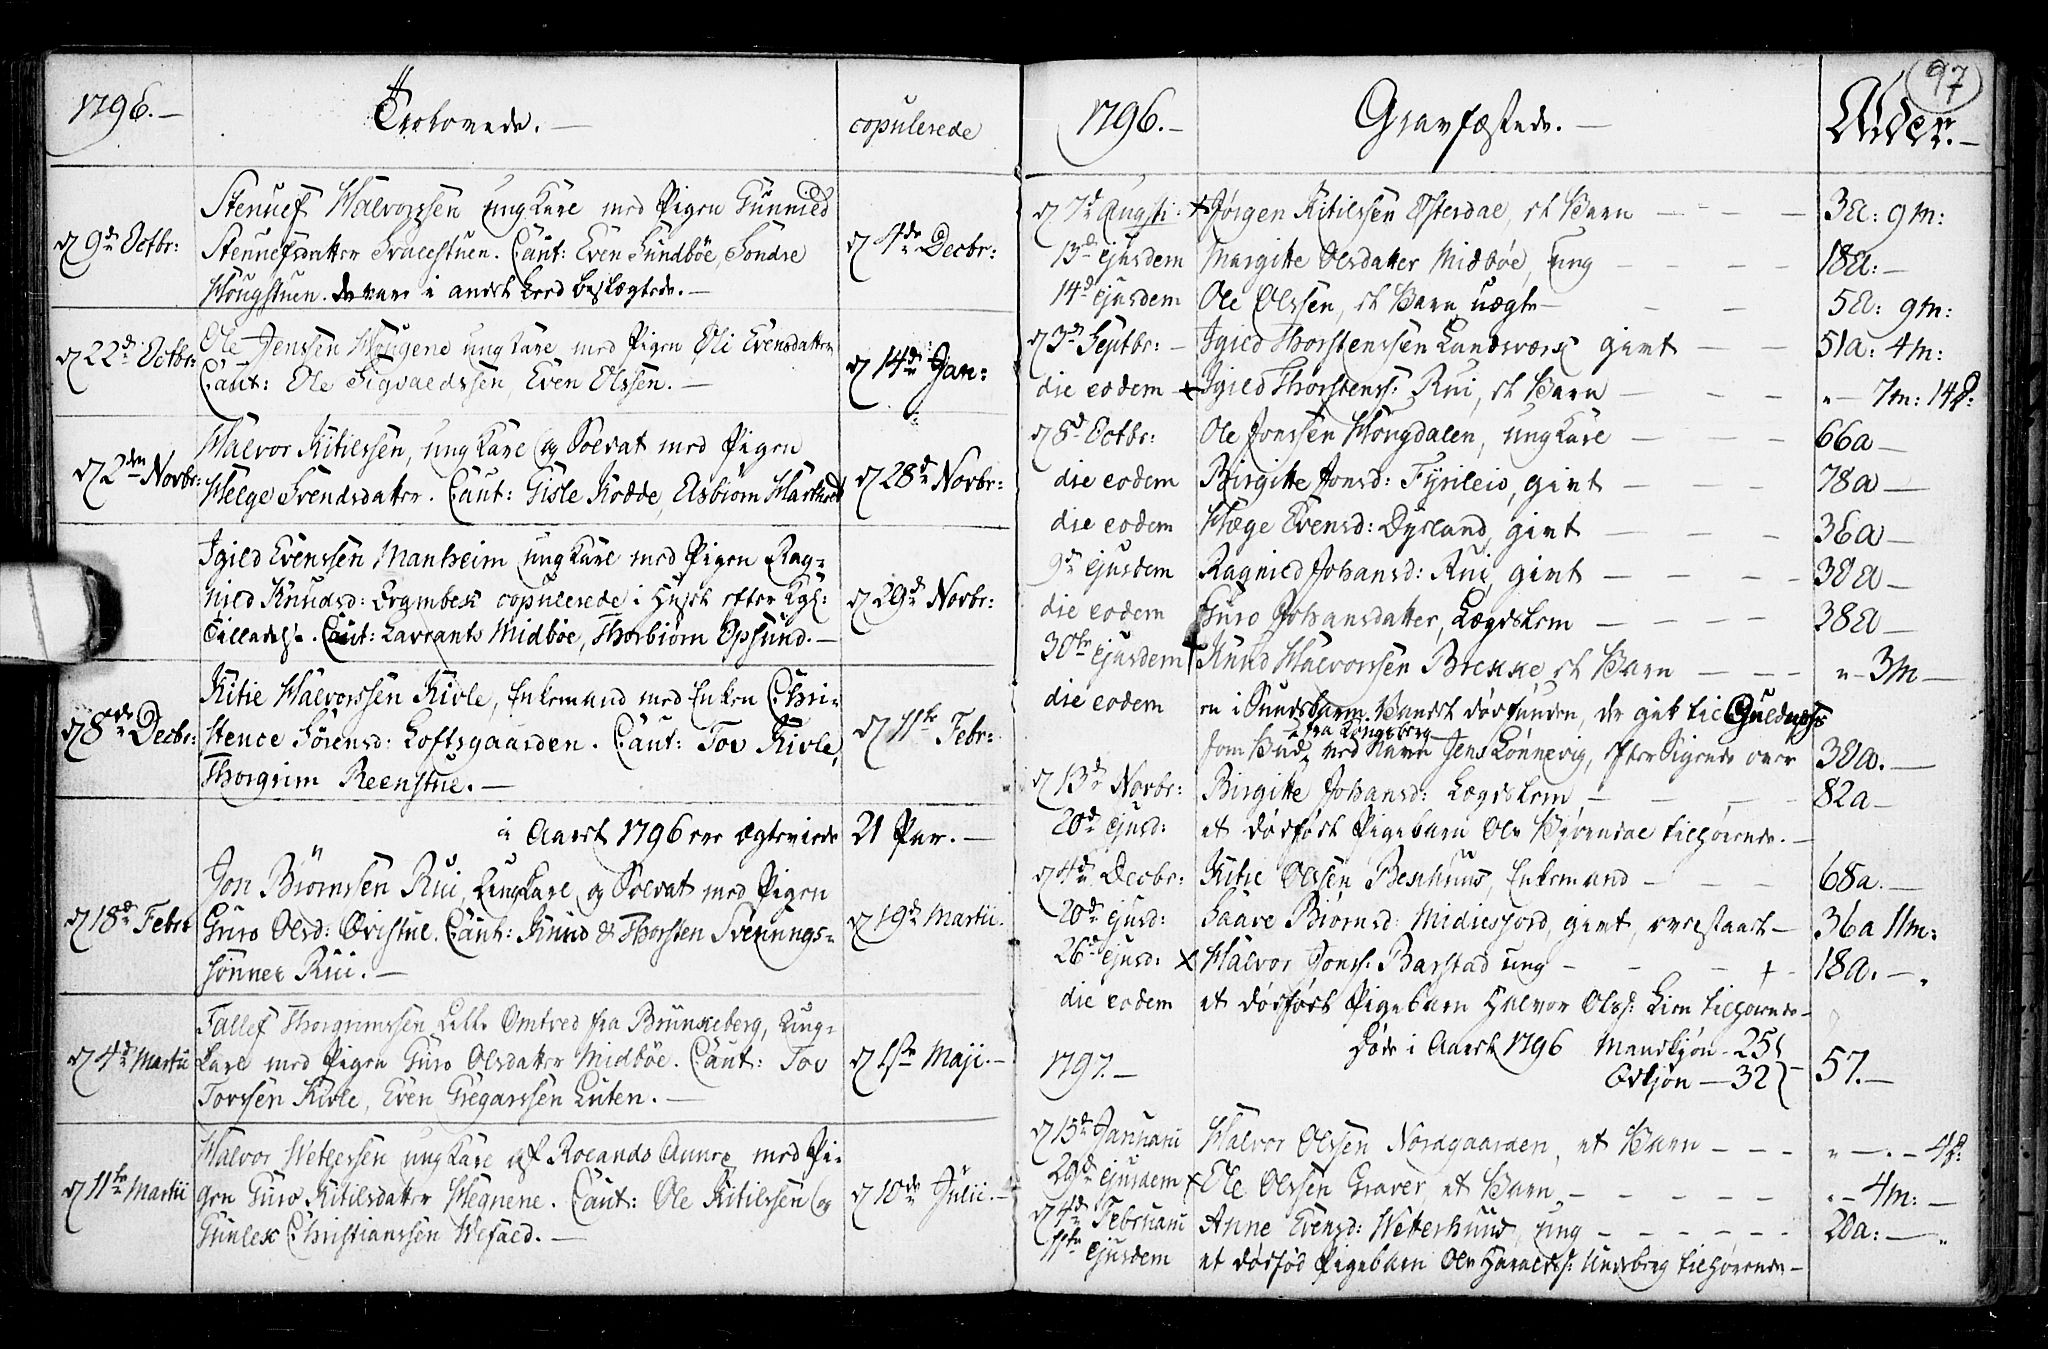 1796.—
Trolovede.—
copulerede
d 9de Octbr:
Stenulf Halvorssen ungKarl med Pigen Gunnild
Stenulfsdatter Svalestuen. Caut: Even Sundböe, Sondre
Hougstuen. de vare i andet Leed beslægtede.—
d 4de Decbr:
d 22de Octbr:
Ole Jenssen Hougene ungKarl med Pigen Oli Evensdatter
Caut: Ole Sigvaldssen, Even Olssen.—
d 14de Jan:
d 2den Novbr:
Halvor Kitilssen, ungKarl og Soldat med Pigen
Helge Svendsdatter. Caut: Gisle Kodde, Asbiörn
d 28de Novbr:
Igild Evenssen Manheim ungKarl med Pigen Rag-
nild Knudsd: copulerede i Huset efter Kgl:
Tilladelse. Caut: Lavrants Midböe, Thorbiörn Opsund.—
d 29de Novbr:
d 8de Decbr:
Kitil Halvorssen Kivle, Enkemand med Enken Chri-
stence Sörensd: Loftsgaarden. Caut: Tov Kivle,
Thorgrim Reenstul.—
d 11te Febr:
i Aaret 1796 ere ægteviede 21 Par.—
d 18de Febr
Jon Biörnssen Rui, ungKarl og Soldat med Pigen
Guro Olsd: Qvistul. Caut: Knud & Thorsten Svenungs-
sönner Rui.—
d 19de Martii.
d 4de Martii
Tallef Thorgrimssen Lille Omtved fra Brunkeberg, Ung-
karl med Pigen Guro Olsdatter Midböe. Caut: Tov
Tovssen Kivle, Even Gregarssen Luten.—
d 1ste Maji.—
d 11te Martii
Halvor Vetlessen ungKarl af Rolands Annex med Pi-
gen Guro Kitilsdatter Hegnene. Caut: Ole Kitilssen og
Gunlek Christianssen Wefald.—
d 10de Julii.—
97
1796.—
Gravfæstede.—
Alder.—
d 7de Augsti. × Jørgen Kitilssen Østerdal, et Barn — 3a: 9m:
13de ejusdem Margitte Olsdatter Midböe, ung — 18a:—
14de ejusdem Ole Olssen, et Barn uægte — 5a: 9m:
d 3de Septbr: — Igild Thorstenssen Landsværk givt — 51a: 4m:
die eodem × Igild Thorstenss: Rui, et Barn — „— 7m: 14d:
d 8de Octbr: Ole Jonssen Hougdalen, ungKarl — 66a—
die eodem Birgitte Jonsd: Fyrileiv, givt — 78a—
die eodem Hæge Evensd: Dyrland, givt — 36a—
9de ejusdem Ragnild Johansd: Rui, givt — 38a—
die eodem Guro Johansdatter, Lægdslem — 38a—
30te ejusdem † Knud Halvorssen Brekke, et Barn — „— 3m—
die eodem en i Sundsbarm Vandet død funden, der gik til Guldnæs
som Bud fra Kongsberg ved Navn Jens Lønnevig, efter Sigende over 30a.—
d 13de Novbr: Birgitte Johansd: Lægdslem — 82a—
20de ejusd: et dødfødt Pigebarn Ole tilhørende.—
d 4de Decbr: Kitil Olssen Enkemand — 68a.—
20de ejusd: Saave Biörnsd: Midlesfjord, givt, — 36a 11m:
26de ejusd: × Halvor Jonss: Barstad ung — † — 18a.—
die eodem et dødfødt Pigebarn Halvor Olss: Lien tilhørende—
Døde i Aaret 1796 Mandkjøn — 25
Qvkjøn — 32 } 57.—
1797.—
d 15de Januarii Halvor Olssen Nordgaarden, et Barn — „—.— 4d:
29de ejusdem × Ole Olssen Graver, et Barn — „— 4m:—
d 4de Februarii Anne Evensd: Weterhuus, ung — 20a:—
11te ejusdem et dødfød Pigebarn Ole Haralds: tilhørende—